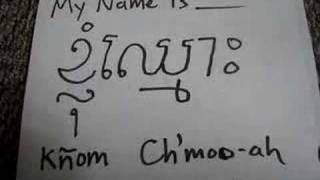 My Name is ____
ខ្ញុំឈ្មោះ
Kñom Ch'moo-ah